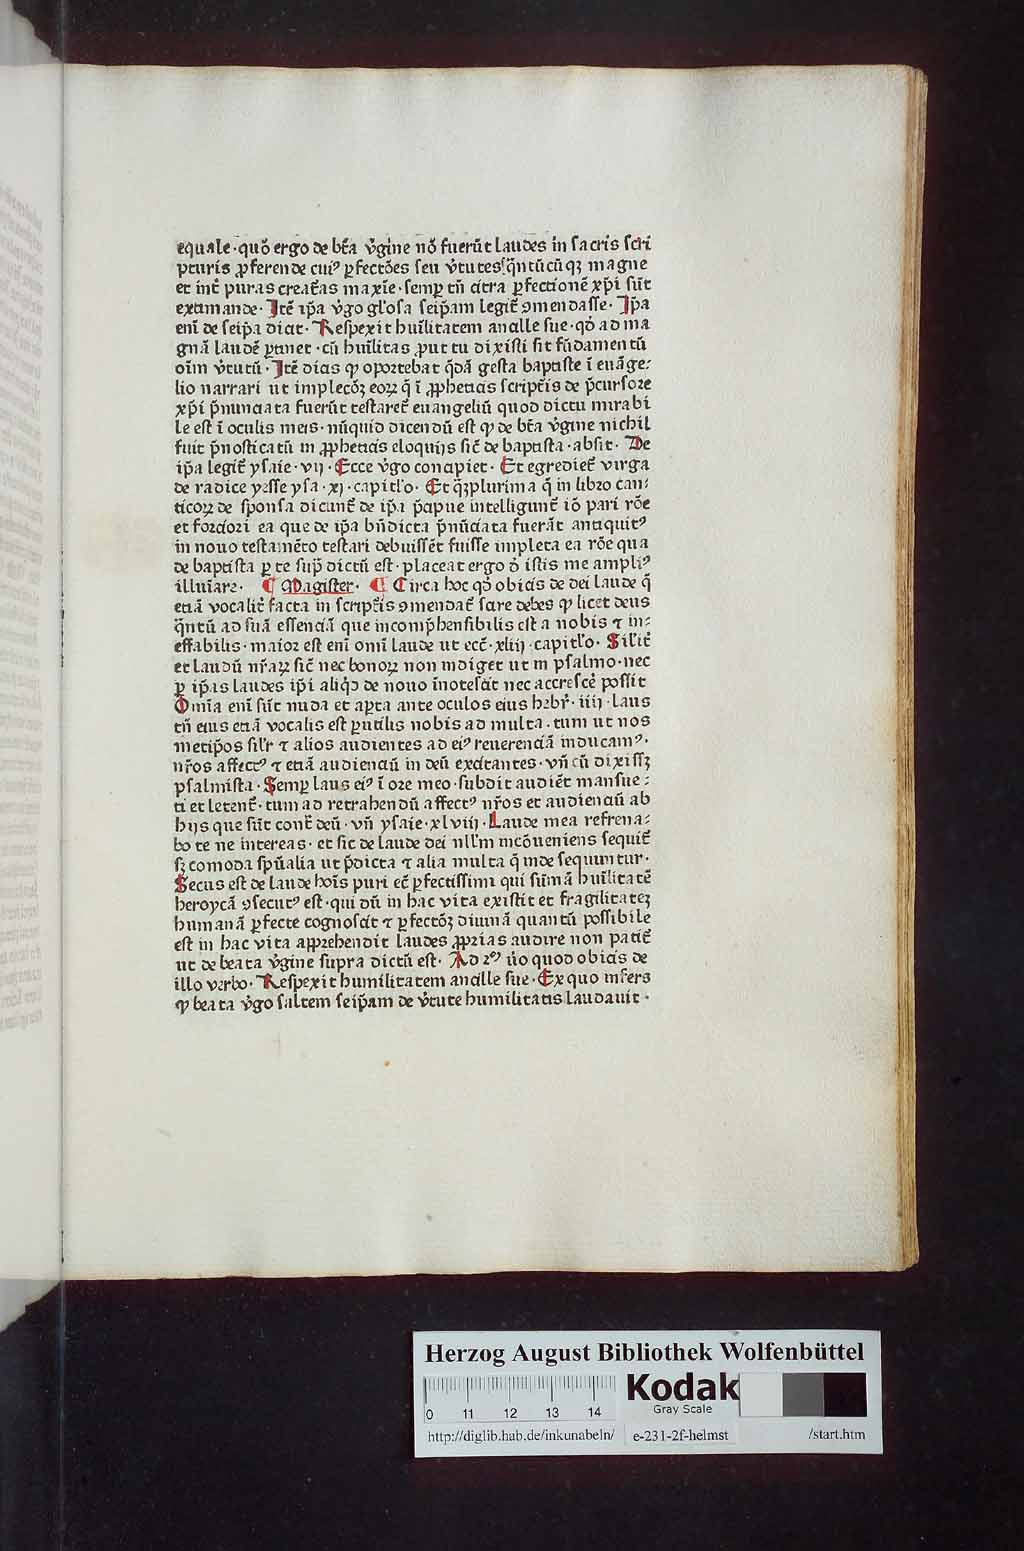 equale·quō ergo de bt̄a v̄gine nō fuerūt laudes in sacris scri
pturis ꝓferende cuiꝰ ꝑfectōes seu v̄tutes q̄ntūcūqꝫ magne
et int̄ puras creat̄as maxīe·semꝑ tn̄ citra ꝑfectionē xp̄i sūt
extimande·Itē ip̄a v̄go gl'osa seip̄am legit̄ ꝯmendasse·Ip̄a
enī de seip̄a dicit·Respexit huīlitatem ancille sue·qd̄ ad ma
gnā laudē ꝑtinet·cū huīlitas ꝓut tu dixisti sit fūdamentū
oīm v̄tutū·Itē dicis ꝙ oportebat q̄dā gesta baptiste ī euāge-
lio narrari ut implecōꝫ eoꝝ q̄ ī ꝓpheticis script̄is de p̄cursore
xp̄i p̄nunciata fuerūt testaret̄ euangeliū quod dictu mirabi
le est ī oculis meis·nūquid dicendū est ꝙ de bt̄a v̄gine nichil
fuit p̄nosticatū in ꝓpheticis eloquijs sic̄ de baptista·absit·De
ip̄a legit̄ ysaie·vij·Ecce v̄go concipiet·Et egrediet̄ virga
de radice yesse ysa·xj·capitl'o·Et q̄ꝫplurima q̄ in libro can-
ticoꝝ de sponsa dicunt̄ de ip̄a p̄cipue intelligunt̄ iō pari rōe
et forciori ea que de ip̄a bn̄dicta p̄nūciata fuerāt antiquitꝰ
in nouo testamēto testari debuissēt fuisse impleta ea rōe qua
de baptista ꝑ te sup̄ dictū est·placeat ergo ō istis me ampliꝰ
illuīare· ¶ Magister· ¶ Circa hoc qd̄ obicis de dei laude q̄
eciā vocalit̄ facta in script̄is ꝯmendat̄ scire debes ꝙ licet deus
q̄ntū ad suā essenciā que incomp̄hensibilis est a nobis ⁊ in-
effabilis·maior est enī omī laude ut ecc̄·xliij·capitl'o·Sil'it̄
et laudū nr̄aꝝ sic̄ nec bonoꝝ non indiget ut in psalmo·nec
ꝑ ip̄as laudes ip̄i aliq̇d de nouo īnotescit nec accrescē possit
Omīa enī sūt nuda et aꝑta ante oculos eius hebr̄·iiij·laus
tn̄ eius eciā vocalis est ꝑutilis nobis ad multa·tum ut nos
metip̄os sil'r ⁊ alios audientes ad eiꝰ reuerenciā inducamꝰ·
nr̄os affectꝰ ⁊ eciā audienciū in deū excitantes·vn̄ cū dixissꝫ
psalmista·Semꝑ laus eiꝰ ī ore meo·subdit audiēt mansue-
ti et letent̄·tum ad retrahendū affectꝰ nr̄os et audienciū ab
hijs que sūt cont̄ deū·vn̄ ysaie·xlviij·Laude mea refrena-
bo te ne intereas·et sic de laude dei nll'm incōueniens sequit̄
sꝫ comoda spūalia ut p̄dicta ⁊ alia multa q̄ inde sequuntur·
Secus est de laude hoīs puri ec̄ ꝑfectissimi qui sūmā huīlitatē
heroycā ꝯsecutꝰ est·qui dū in hac vita existit et fragilitateꝫ
humanā ꝑfecte cognoscit ⁊ ꝑfectōꝫ diuinā quantū possibile
est in hac vita apprehendit laudes ꝓprias audire non patit̄
ut de beata v̄gine supra dictū est·Ad 2ᵐ v̄o quod obicis de
illo verbo·Respexit humilitatem ancille sue·Ex quo infers
ꝙ beata v̄go saltem seip̄am de v̄tute humilitatis laudauit·
Herzog August Bibliothek Wolfenbüttel
Kodak
Gray Scale
0 11 12 13 14
http://diglib.hab.de/inkunabeln/ e-231-2f-helmst /start.htm